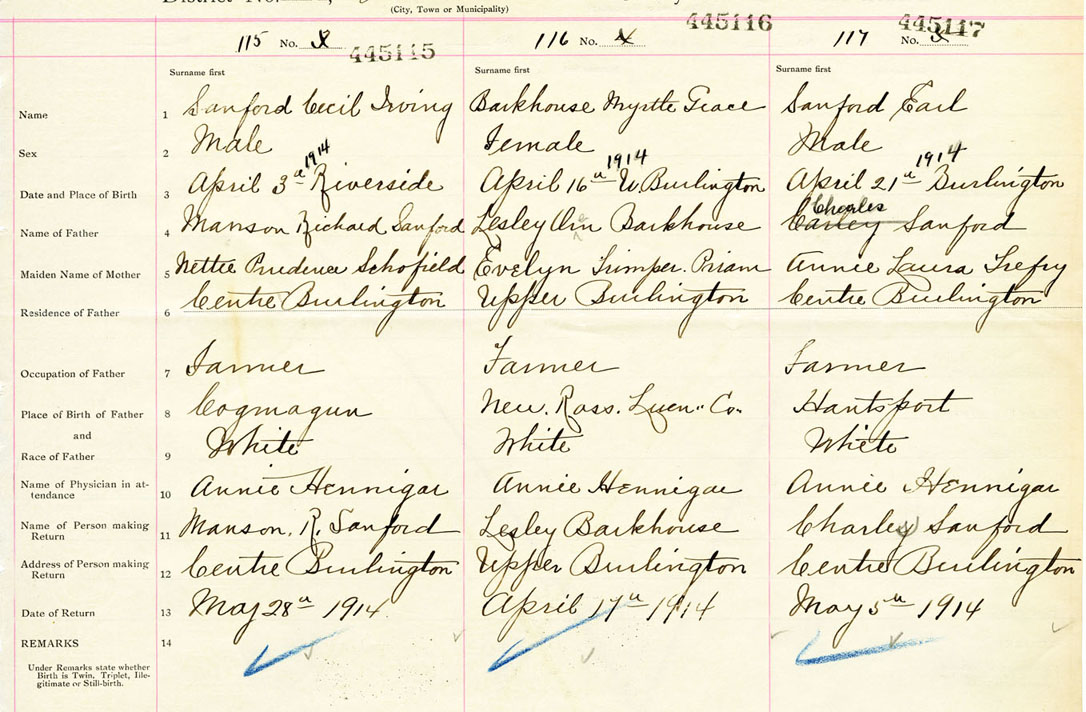 (City, Town or Municipality)
115 No. 445115 116 No. 4 445116 117 No. 445117
Surname first Surname first Surname first
Name 1 Sanford Cecil Irving Barkhouse Myrtle Grace Sanford Earl
Sex 2 Male Female Male
1914 1914 1914
Date and Place of Birth 3 April 3rd Riverside April 16th W Burlington April 21st Burlington
Charles
Name of Father 4 Manson Richard Sanford Lesley Barkhouse Sanford
Maiden Name of Mother 5 Nettie Prudence Schofield Evelyn Trimper. Annie Laura Trefry
Residence of Father 6 Centre Burlington Upper Burlington Centre Burlington
Occupation of Father 7 Farmer Farmer Farmer
Place of Birth of Father 8 Cogmagun New. Ross. Luen" Co. Hantsport
and
Race of Father 9 White White White
Name of Physician in at-
tendance 10 Annie Hennigar Annie Hennigar Annie Hennigar
Name of Person making
Return 11 Manson. R. Sanford Lesley Barkhouse Charles Sanford
Address of Person making
Return 12 Centre Burlington Upper Burlington Centre Burlington
Date of Return 13 May 28th 1914 April 17th 1914 May 5th 1914
REMARKS 14
Under Remarks state whether
Birth is Twin, Triplet, Ille-
gitimate or Still-birth.